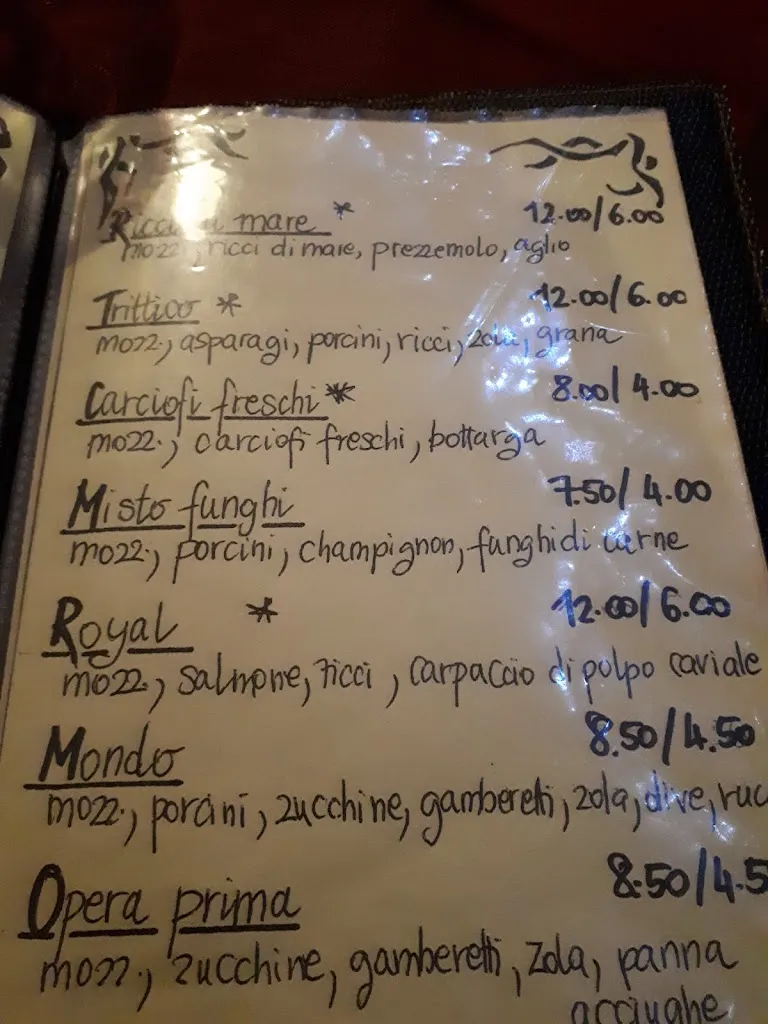 Ricci di mare * 12.00/6.00
mozz., ricci di mare, prezzemolo, aglio
Trittico * 12.00/6.00
mozz., asparagi, porcini, ricci, zola, grana
Carciofi freschi * 8.00/4.00
mozz., carciofi freschi, bottarga
Misto funghi 7.50/4.00
mozz., porcini, champignon, funghi di carne
Royal * 12.00/6.00
mozz., salmone, ricci, carpaccio di polpo caviale
Mondo 8.50/4.50
mozz., porcini, zucchine, gamberetti, zola, olive, ruc
Opera prima 8.50/4.5
mozz., zucchine, gamberetti, zola, panna
acciughe